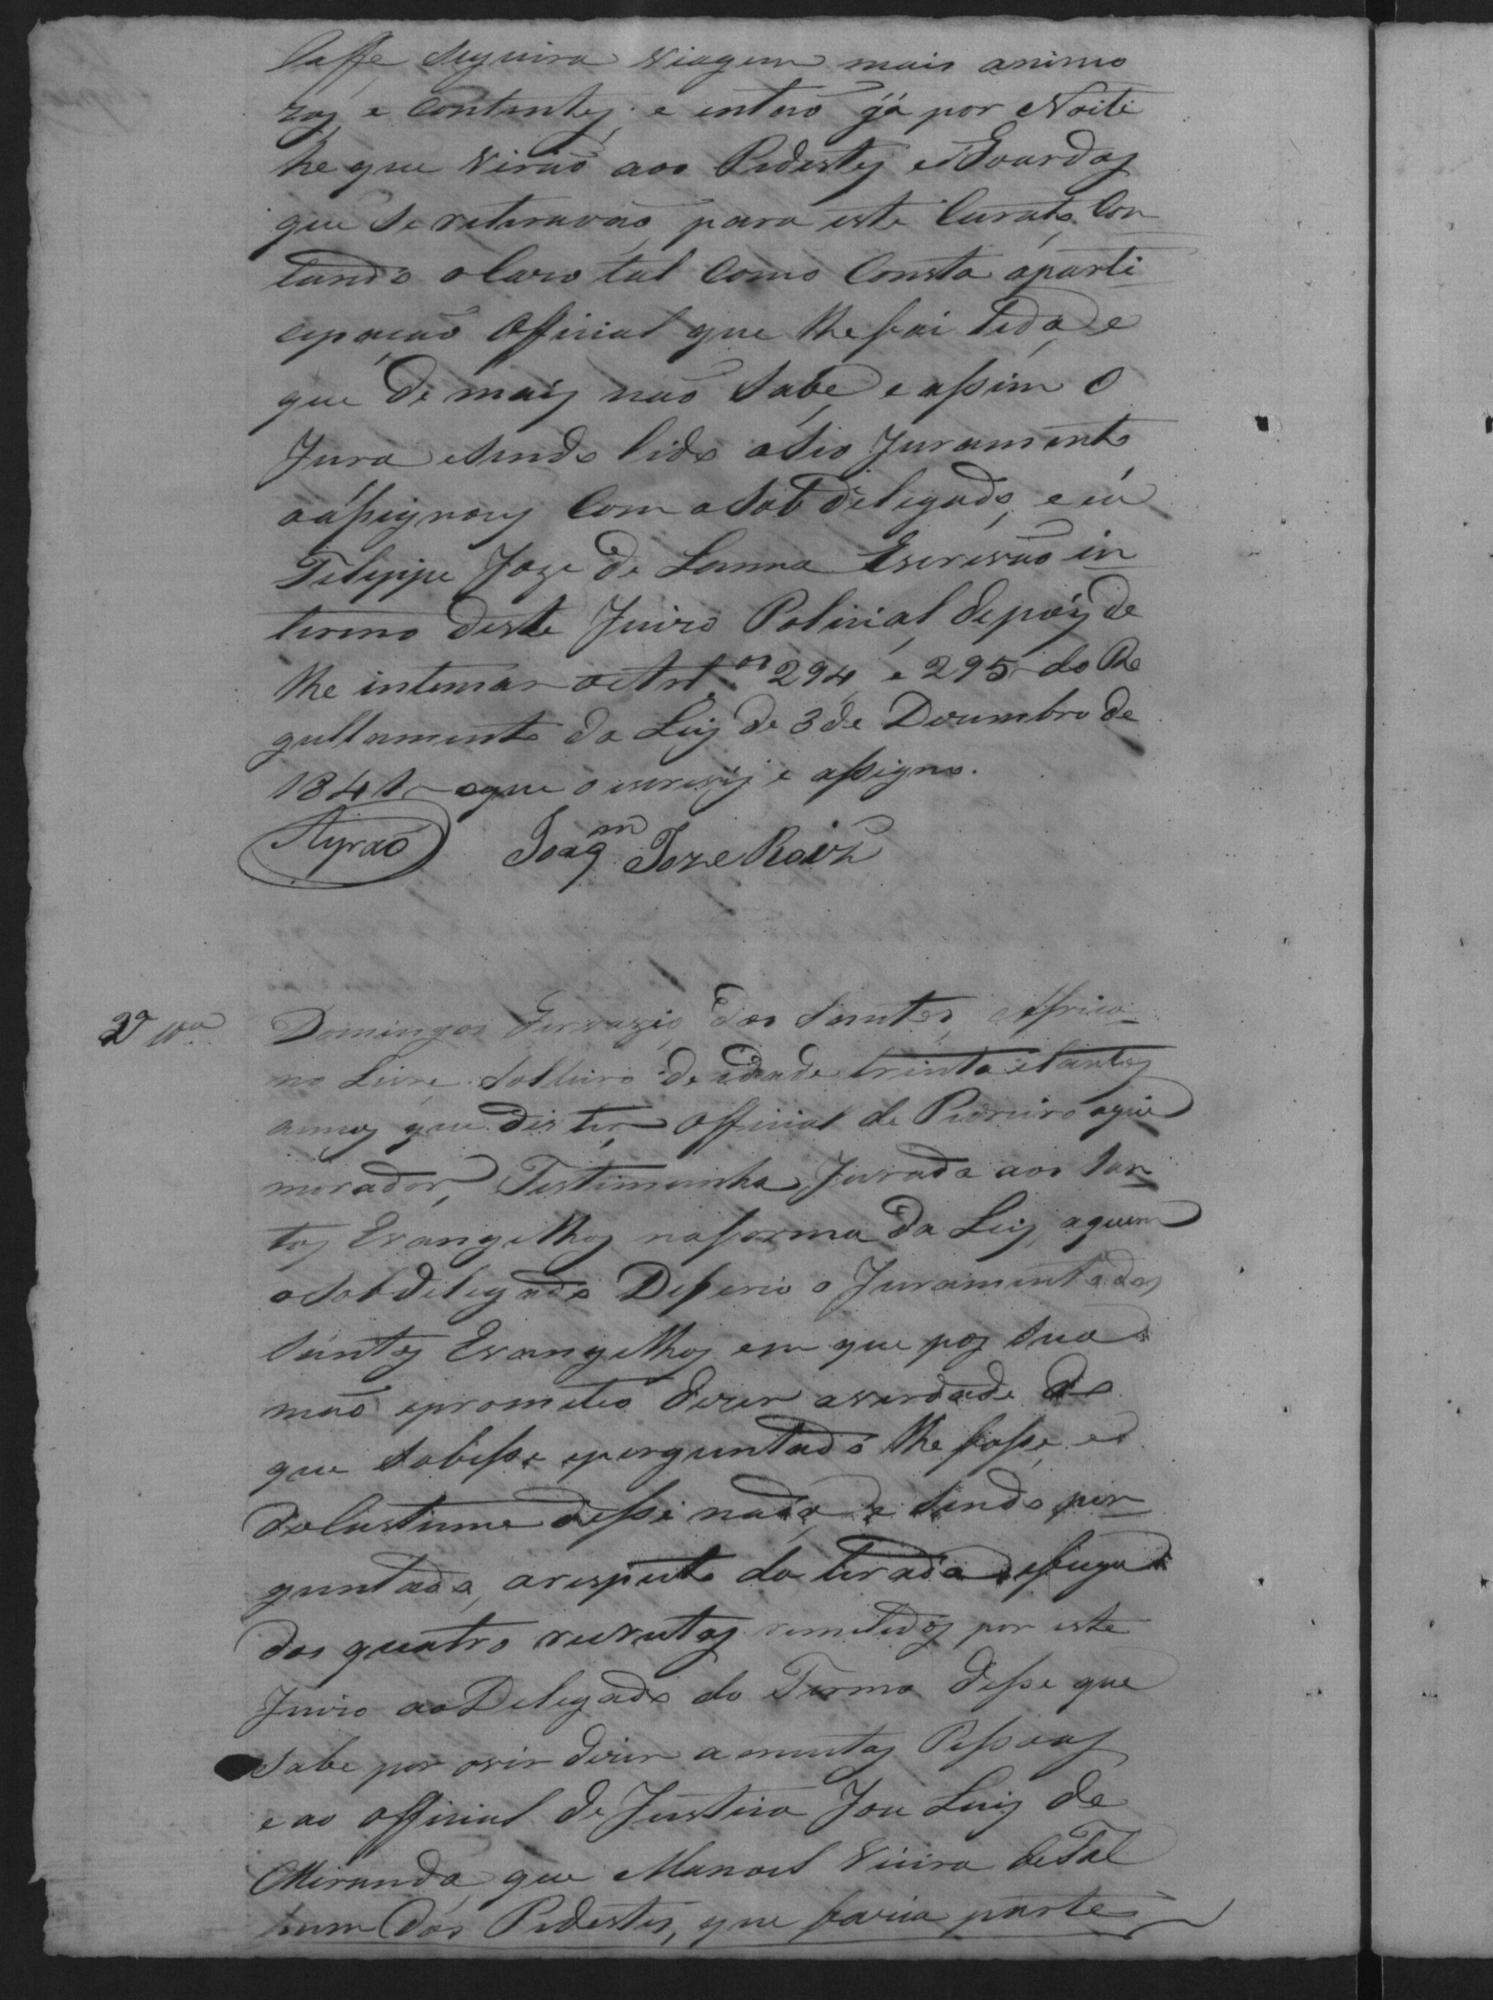 Caffe seguira viagem mais animo
zos e contentes, e entaõ já por Noite
he que viraõ aos Pedestes e Gôardas
que se retiravaõ para este Curato, Con
tando o Cazo tal como Consta a parti
cipacaõ Official que lhe foi lida, e
que de mais naõ Sabe e assim o
Jura e sendo lido o seo Juramento
o assignou Com o Sob delegado, e eu
Felippe Joze de Lanna Escrivaõ in
terino deste Juizo Policial depois de
lhe intimar os Art.os 294 e 295 do Re
gullamento da Leÿ de 3 de Dezembro de
1841 o que o escrevÿ e assigno.
Ayraõ Joaqm Joze Roiz
2ª tta
Domingos Gervazio dos Santos, Africa
no Livre Solteiro de idade trinta e tantos
annos que diz ter, Official de Pedreiro aqui
morador, Testimunha Jurada aos San
tos Evangelhos na forma da Leÿ, a quem
o Sobdelegado Deferio o Juramento dos
Santos Evangelhos em que pos sua
maõ e prometeo dizer a verdade do
que Sobesse e perguntado lhe fosse, e
do Custume disse nada, e sendo per
guntado, a respeito da tirada e fuga
dos quatro recrutas remetidos por este
Juizo ao Delegado do Termo disse que
Sabe por ovir dizer a muntas Pessoas
e ao official de Justiça Joze Luis de
Miranda que Manoel Vieira de Tal
hum dos Pedestes, que fazia parte